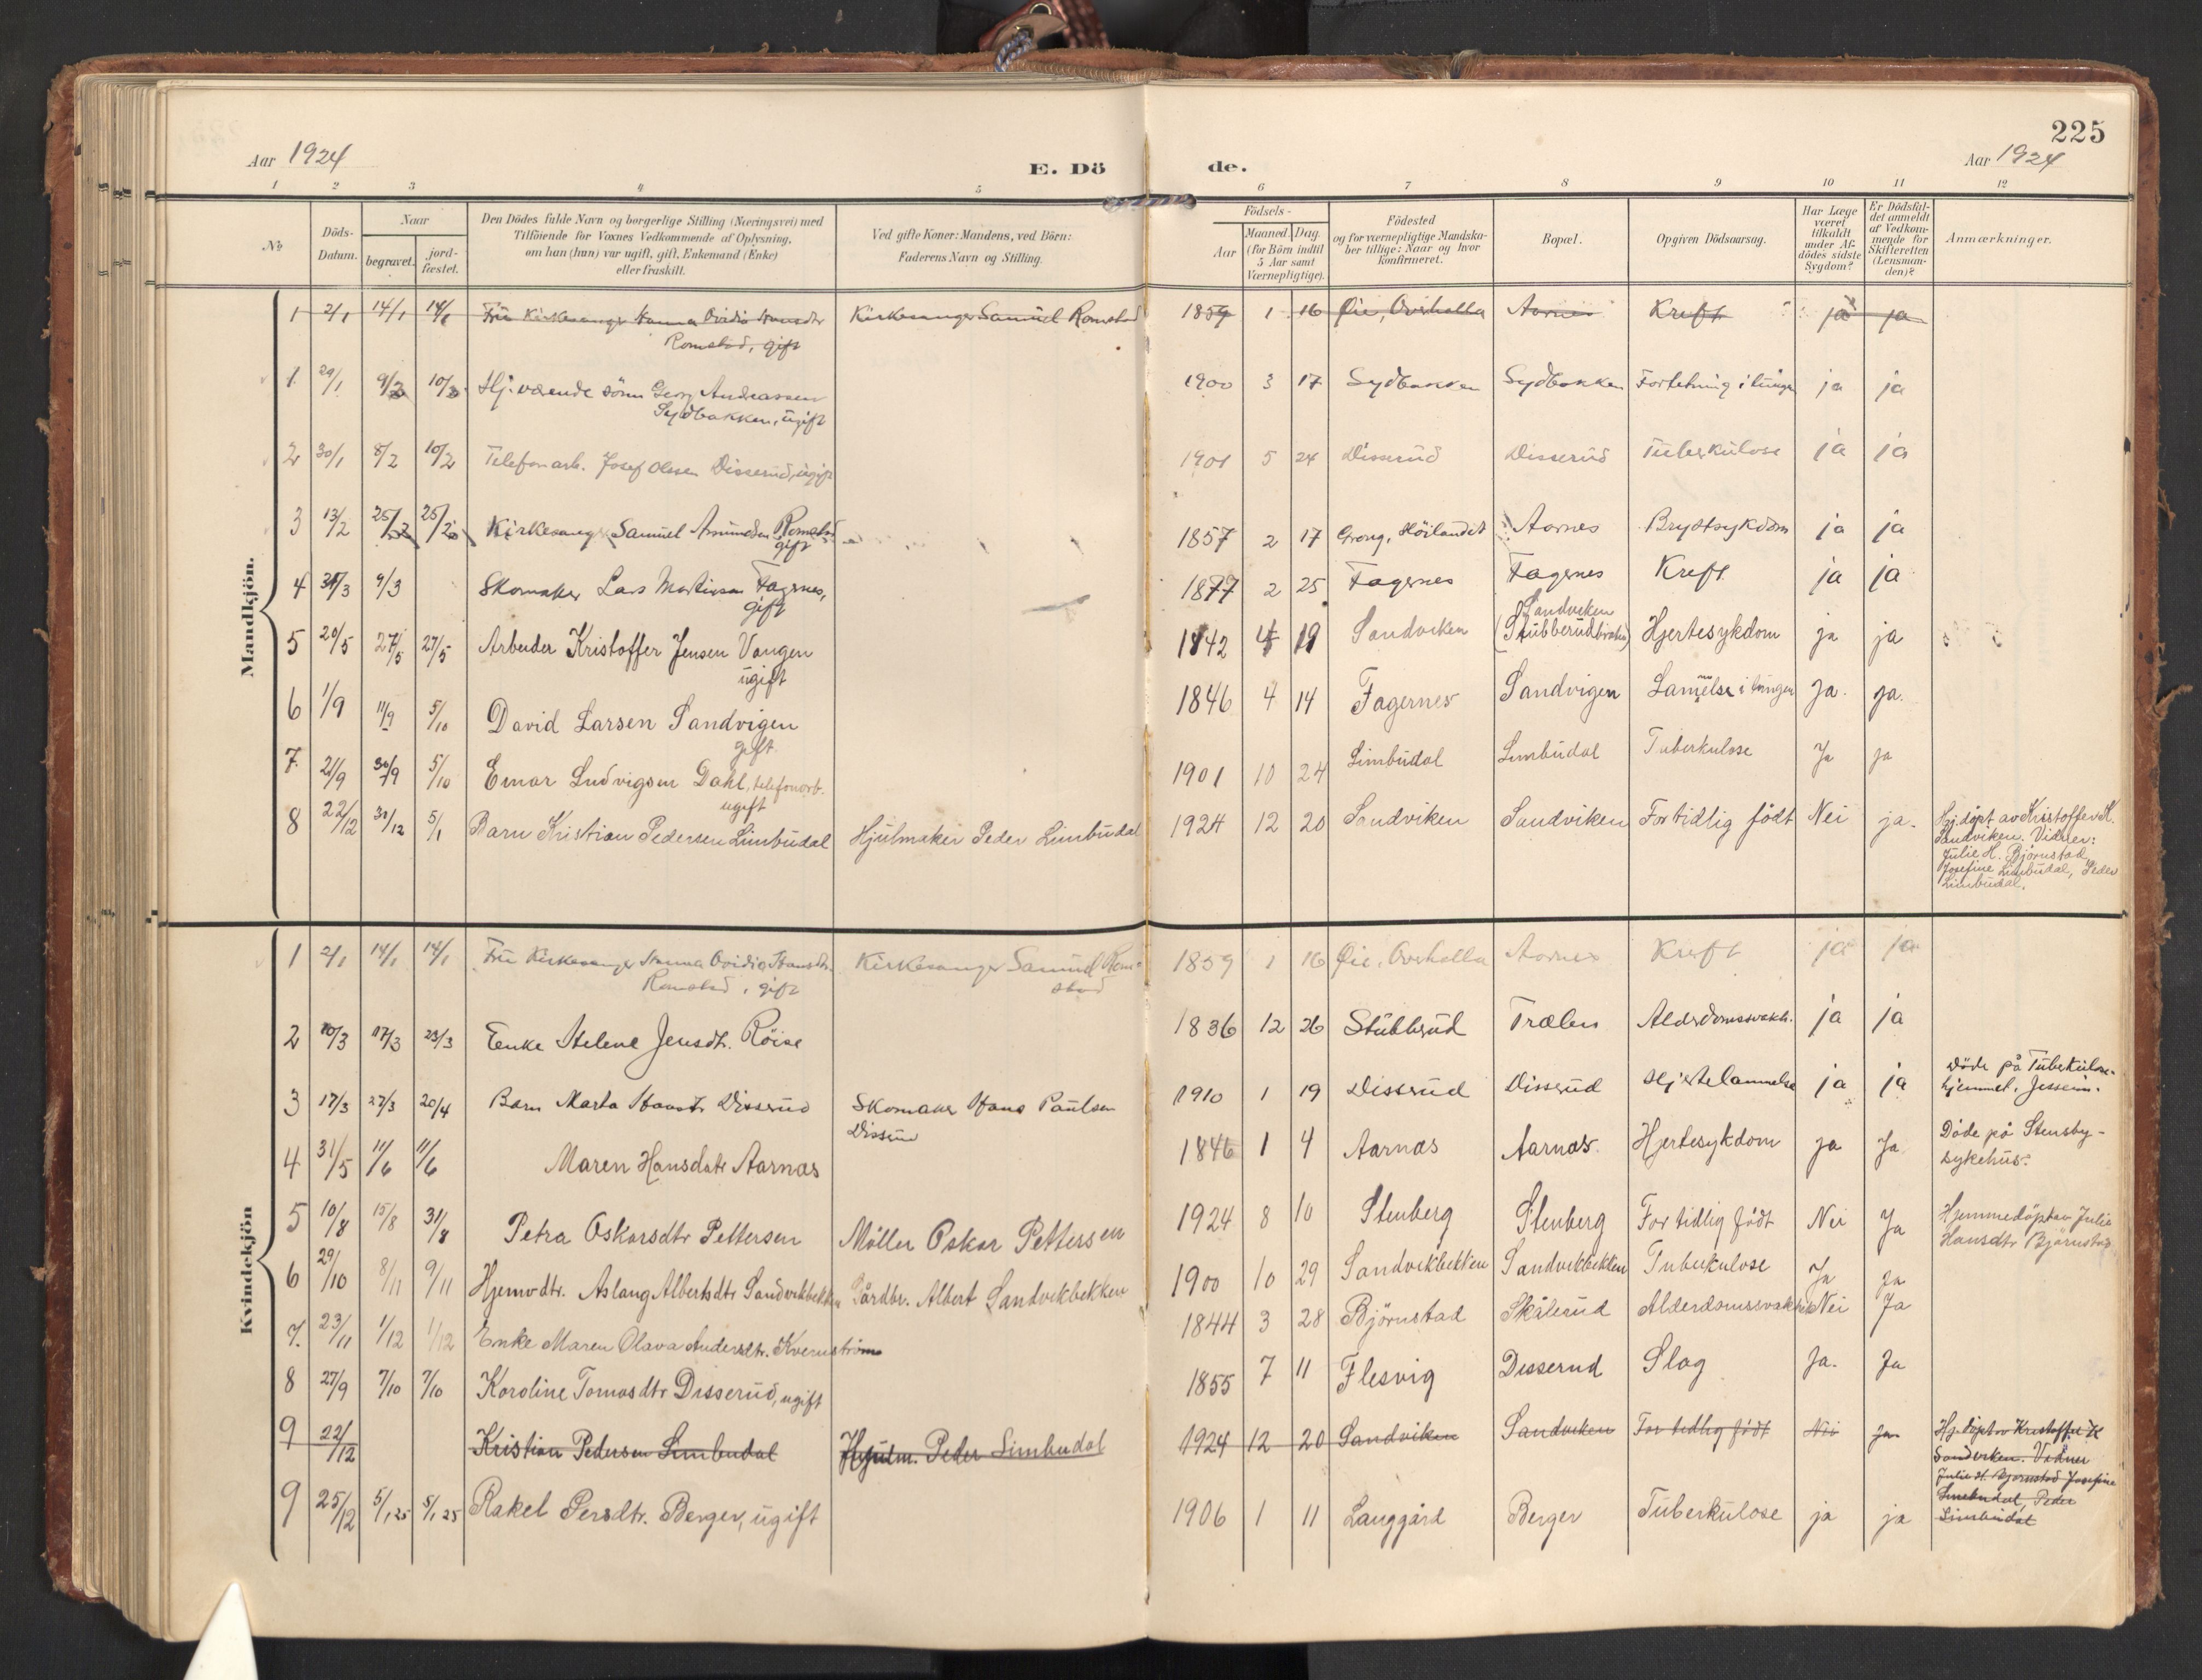 225
Aar 1924
E. Dö de.
Aar 1924
1 2 3 4 5 6 7 8 9 10 11 12
No
Döds-Datum.
Naar
begravet. jord-fæstet.
Den Dödes fulde Navn og borgerlige Stilling (Næringsvei) med
Tilföiende for Voxnes Vedkommende af Oplysning,
om han (hun) var ugift, gift, Enkemand (Enke)
eller fraskilt.
Ved gifte Koner: Mandens, ved Börn:
Faderens Navn og Stilling.
Födsels-
Aar Maaned. Dag.
(for Börn indtil
5 Aar samt
Værnepligtige).
Födested
og for værnepligtige Mandska-
ber tillige: Naar og hvor
konfirmeret.
Bopæl.
Opgiven Dödsaarsag.
Har Læge
været
tilkaldt
under Af-
dödes sidste
Sygdom?
Er Dödsfal-
det anmeldt
af Vedkom-
mende for
Skifteretten
(Lensman-
den)?
Anmærkninger.
Mandkjön.
1 2/1 14/1 14/1 Fru Kirkesanger Hanna Ovidia Hansdtr Kirkesanger Samuel Romstad 1859 1 16 Øie, Overhalla Aarnes Kreft ja ja
Romstad, gift
1. 29/1 9/2 10/2 Hj. værende sönn Georg Andreassen 1900 3 17 Sydbakken Sydbakken Fortetning i lunger ja ja
Sydbakken, ugift
2 30/1 8/2 10/2 Telefonarb. Josef Olsen Disserud, ugift 1901 5 24 Disserud Disserud Tuberkulose ja ja
3 13/2 25/2 25/2 Kirkesanger Samuel Amundsen Romstad 1857 2 17 Grong, Höilandet Aarnes Brystsykdom ja ja
gift
4 31/3 9/3 Skomaker Lars Martinsen Fagernes, 1877 2 25 Fagernes Fagernes Kreft ja ja
gift
Sandviken
5 20/5 27/5 27/5 Arbeider Kristoffer Jensen Vangen 1842 4 19 Sandviken (Stubberud) Hjertesykdom ja ja
ugift
6 1/9 11/9 5/10 David Larsen Sandvigen 1846 4 14 Fagernes Sandvigen Lammelse i lungen Ja. ja.
gift
7. 21/9 30/9 5/10 Einar Ludvigsen Dahl, telefonarb. 1901 10 24 Limbudal Limbudal Tuberkulose Ja ja
ugift
8 22/12 31/12 5/1 Barn Kristian Pedersen Limbudal Hjulmaker Peder Limbudal 1924 12 20 Sandviken Sandviken For tidlig födt Nei ja. Hj. döpt av Kristoffer K.
Sandviken. Vidner:
Julie H. Björnstad,
Josefine Limbudal, Peder
Limbudal.
Kvindekjön
1 2/1 14/1 14/1 Fru Kirkesanger Hanna Ovidia Hansdtr. Kirkesanger Samuel Rom- 1859 1 16 Øie, Overhalla Aarnes Kreft ja ja
Romstad, gift stad
2 10/3 17/3 23/3 Enke Helene Jensdt. Röise 1836 12 26 Stubberud Trælen Alderdomssvakh. ja ja
3 17/3 27/3 20/4 Barn Marta Hansdtr Disserud Skomaker Hans Paulsen 1910 1 19 Disserud Disserud Hjertelammelse ja ja Döde på Tuberkulose-
Disserud hjemmet, Jessheim.
4 31/5 11/6 11/6 Maren Hansdatr Aarnæs 1846 1 4 Aarnæs Aarnæs. Hjertesykdom ja Ja Döde på Stensby-
sykehus.
5 10/8 15/8 31/8 Petra Oskarsdtr Pettersen Möller Oskar Pettersen 1924 8 10 Stenberg Stenberg For tidlig födt Nei Ja Hjemmedöpt av Julie
Hansdtr Björnstad.
6 29/10 8/11 9/11 Hjemvdtr. Aslaug Albertsdtr Sandvikbekken Gårdbr. Albert Sandvikbekken 1900 10 29 Sandvikbekken Sandvikbekken Tuberkulose Ja ja
7. 23/11 1/12 1/12 Enke Maren Olava Andersdtr. Kvernström 1844 3 28 Björnstad Skålerud Alderdomssvakhet Nei Ja
8 27/9 7/10 7/10 Karoline Tomasdtr Disserud, ugift 1855 7 11 Flesvig Disserud Slag Ja. Ja
9 22/12 Kristian Pedersen Limbudal Hjulm. Peder Limbudal 1924 12 20 Sandviken Sandviken For tidlig födt Nei ja Hj. döpt av Kristoffer K
Sandviken. Vidner
Julie H. Björnstad Josefine
Limbudal, Peder
Limbudal
9 25/12 5/1 25 5/1 25 Rakel Persdtr. Berger, ugift 1906 1 11 Langgård Berger Tuberkulose ja ja